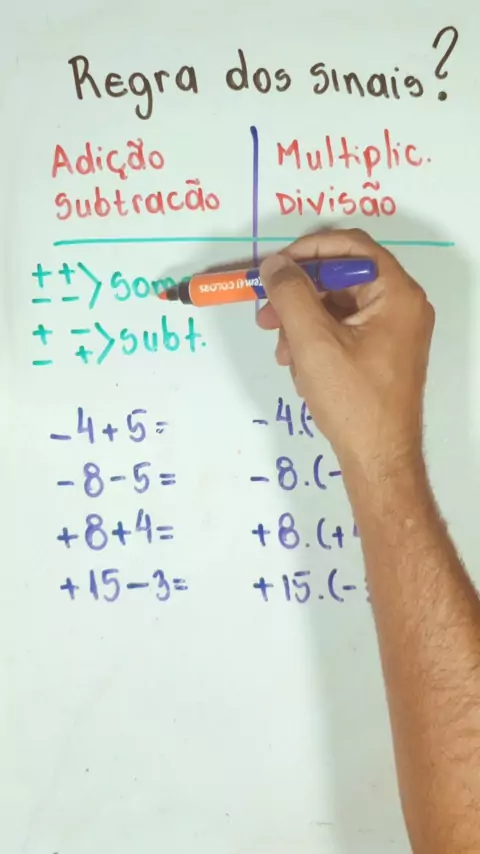 Regra dos sinais?
Adição
subtracão
Multiplic.
Divisão
+ +
- - > som
+ -
- + > subt.
-4+5=
-8-5=
+8+4=
+15-3=
-4.(
-8.(-
+8.(+
+15.(-
COLORS